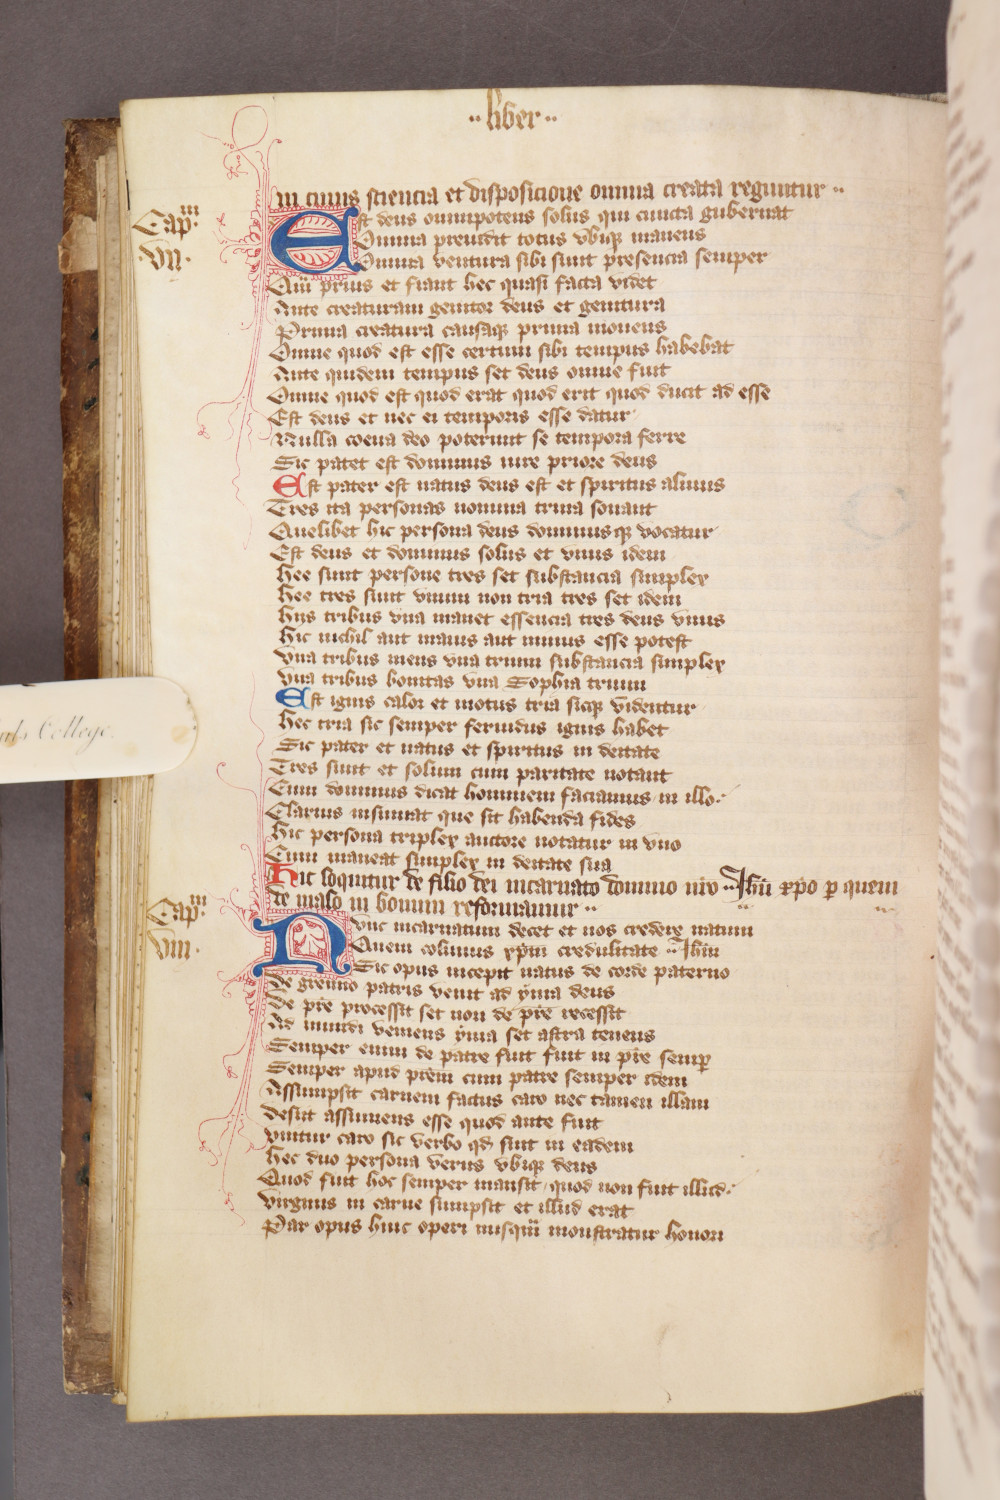 ·· liber ··
in cuius sciencia et disposicione omnia creata reguntur ··
Cap<sup>m</sup>
VII·
Est deus omnipotens solus qui cuncta gubernat
Omnia preuidit totus vbiqȝ manens
Omnia ventura sibi sunt presencia semper
Qm̄ prius et fiant hec quasi facta videt
Ante creaturam genitor deus et genitura
Prima creatura causaqȝ prima mouens
Omne quod est esse certum sibi tempus habebat
Ante quidem tempus set deus omne fuit
Omne quod est quod erat quod erit quod ducit ad esse
Est deus et nec ei temporis esse datur
Nulla coeua deo poterunt se tempora ferre
Sic patet est dominus iure priore deus
Est pater est natus deus est et spiritus almus
Tres ita personas nomina trina sonant
Quelibet hic persona deus dominusqȝ vocatur
Est deus et dominus solus et vnus idem
Hee sunt persone tres set substancia simplex
Hee tres sunt vnum non tria tres set idem
Hijs tribus vna manet essencia tres deus vnus
Hic nichil aut maius aut minus esse potest
Vna tribus mens vna trium substancia simplex
Vna tribus bonitas vna Sophia trium
Est ignis calor et motus tria sicqȝ videntur
Hec tria sic semper feruidus ignis habet
Sic pater et natus et spiritus in deitate
Tres sunt et solium cum paritate notant
Cum dominus dicat hominem faciamus in illo·
Clarius insinuat que sit habenda fides
Hic persona triplex auctore notatur in vno
Cum maneat simplex in deitate sua
Hic loquitur de filio dei incarnato domino nr̄o ·· Ihū xp̄o ꝑ quem
de malo in bonum reformamur ··
Cap<sup>m</sup>
VIII·
Nunc incarnatum decet et nos credere natum
Quem colimus xp̄m credulitate ·· Ihū
Sic opus incepit natus de corde paterno
De gremio patris venit ad yma deus
De pr̄e processit set non de pr̄e recessit
Ad mundi veniens yma set astra tenens
Semper enim de patre fuit fuit in pr̄e semꝑ
Semper apud pr̄em cum patre semper idem
Assumpsit carnem factus caro nec tamen illam
Desiit assumens esse quod ante fuit
Vnitur caro sic verbo qd̄ sint in eadem
Hec duo persona verus vbiqȝ deus
Quod fuit hoc semper mansit quod non fuit illud·
Virginis in carne sumpsit et illud erat
Par opus huic operi nusqm̄ monstratur honori